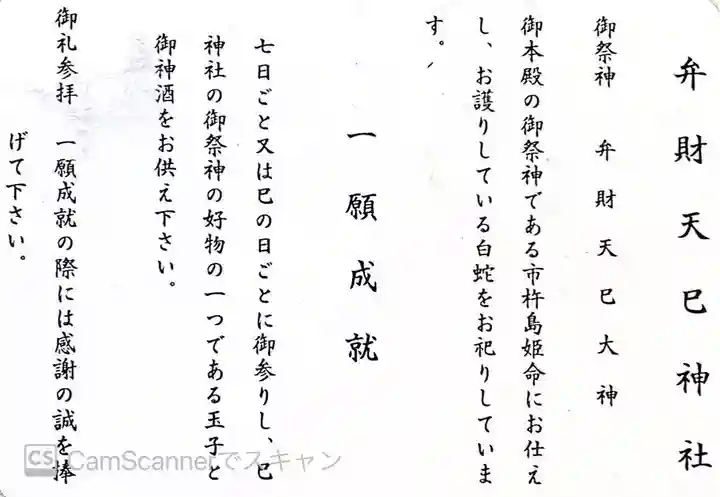 弁財天巳神社
御祭神 弁財天巳大神
御本殿の御祭神である市杵島姫命にお仕え
し、お護りしている白蛇をお祀りしていま
す。
一願成就
七日ごと又は巳の日ごとに御参りし、巳
神社の御祭神の好物の一つである玉子と
御神酒をお供え下さい。
御礼参拝 一願成就の際には感謝の誠を捧
げて下さい。
CS CamScannerでスキャン